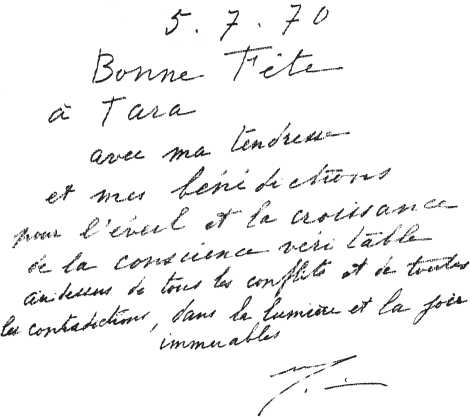 5.7.70
Bonne Fête
à Tara
avec ma tendresse
et mes bénédictions
pour l'éveil et la croissance
de la conscience véritable
au dessus de tous les conflits et de toutes
les contradictions, dans la lumière et la joie
immuables